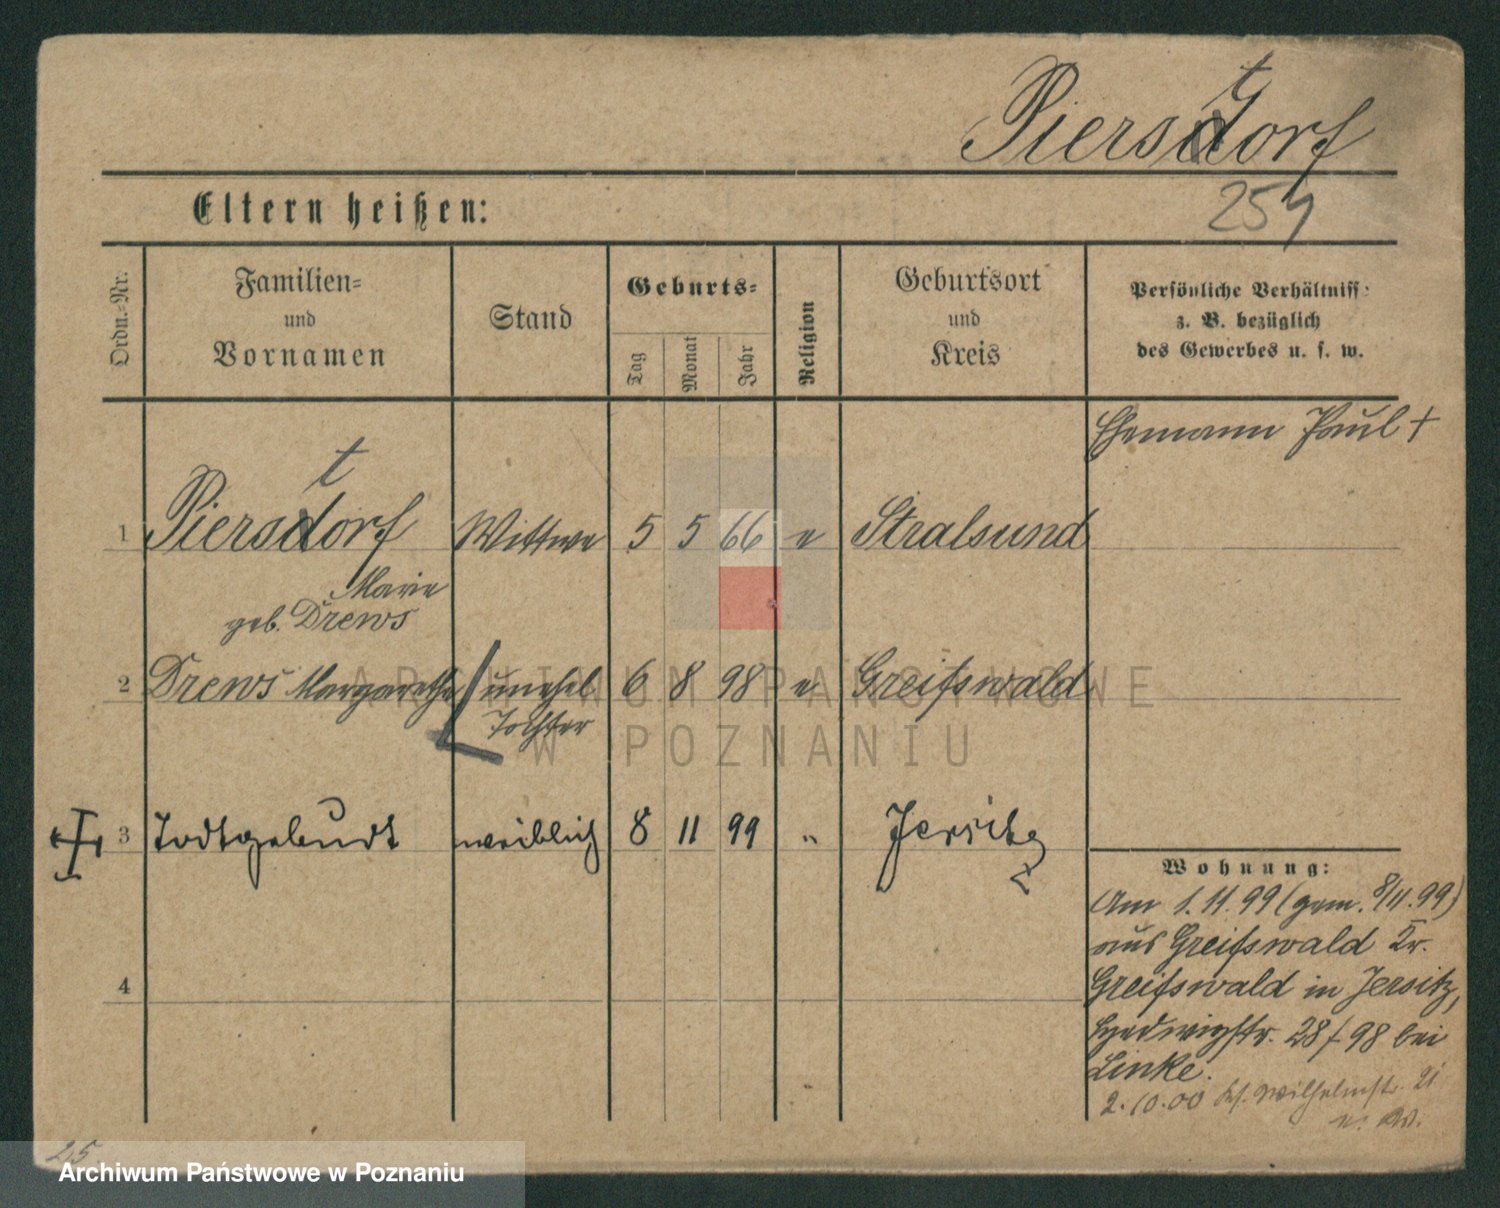 t
Piersdorf
Eltern heißen:
Ordn.-Nr.
Familien-
und
Vornamen
Stand
Geburts-
Tag
Monat
Jahr
Religion
Geburtsort
und
Kreis
Persönliche Verhältniss
z. B. bezüglich
des Gewerbes u. s. w.
Ehemann Paul †
t
1 Piersdorf Wittwe 5 5 66 e Stralsund
Marie
geb. Drews
2 Drews Margarethe unehel 6 8 98 e Greifswald
Tochter
3 Todtgeburt weiblich 8 11 99 " Jersitz
4
Wohnung:
Am 1.11.99 (gem. 8/11.99)
aus Greifswald Kr.
Greifswald in Jersitz,
Hedwigstr. 28/98 bei
Linke.
2.10.00 Wilhelmstr. 21
25
ARCHIWUM PAŃSTWOWE
W POZNANIU
Archiwum Państwowe w Poznaniu